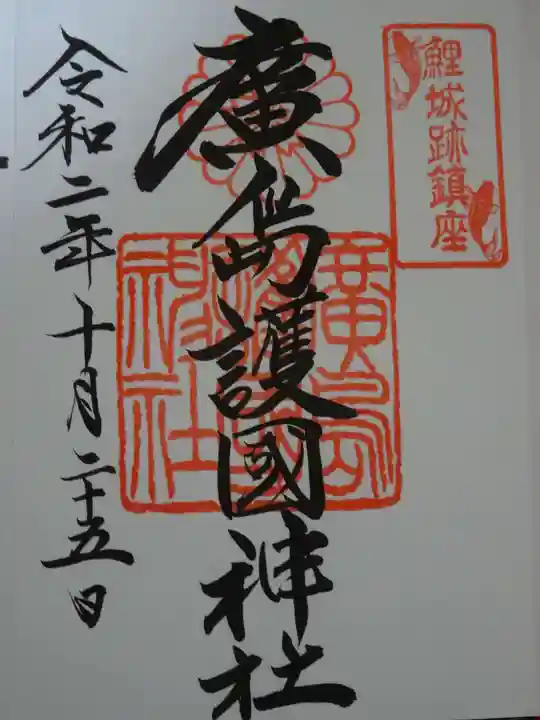 鯉城跡鎮座
廣島護國神社
廣島護國神社
令和二年十月二十五日